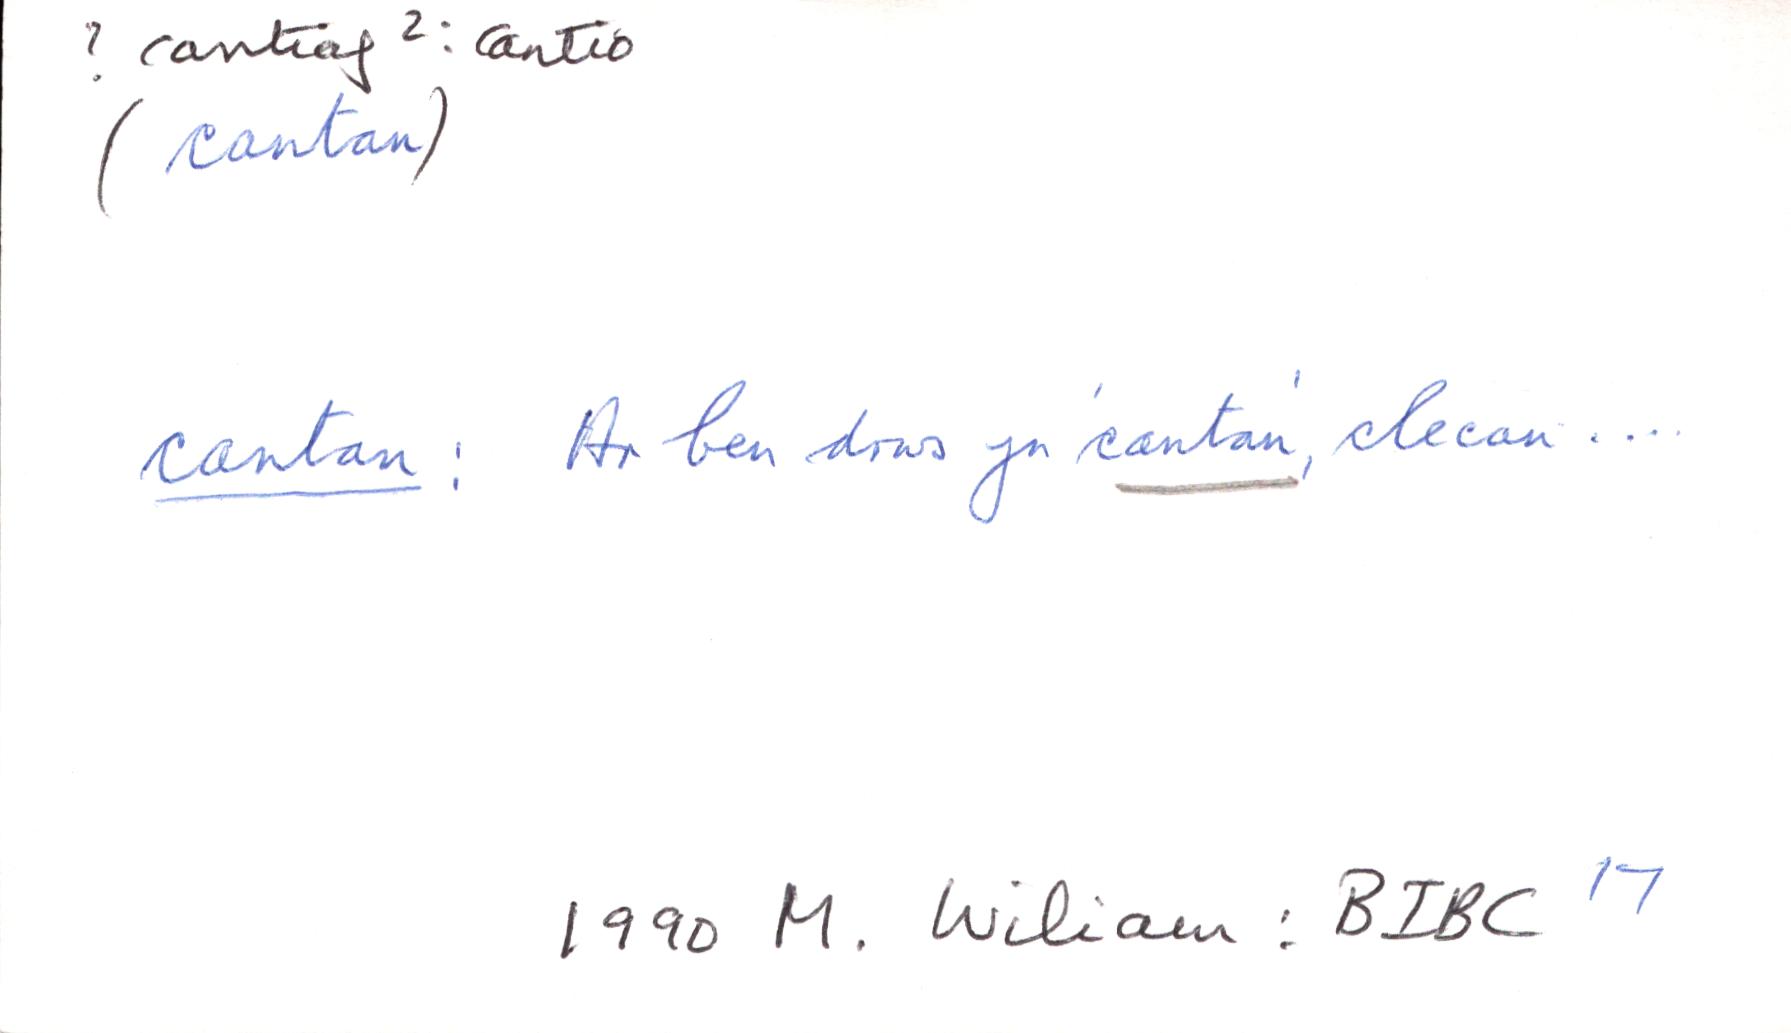 ? cantiaf²: cantio
(cantan)
cantan: Ar ben drws yn 'cantan', clecan ....
1990 M. Wiliam: BIBC 17